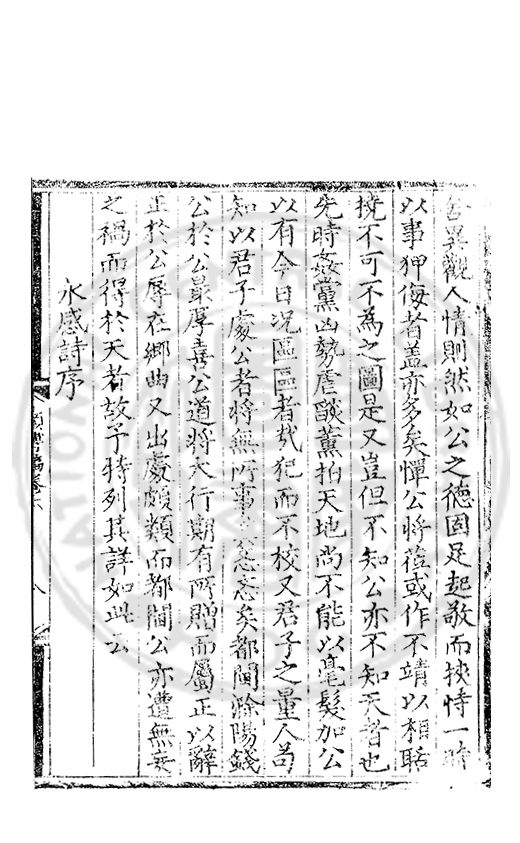 異觀人情則然如公之德固足起敬而挾恃一時
以事狎侮者蓋亦多矣憚公將蒞或作不靖以相聒
撓不可不為之圖是又豈但不知公亦不知天者也
先時姦黨凶勢虐燄薰拍天地尚不能以毫髮加公
以有今日況區區者哉犯而不校又君子之量人苟
知以君子處公者將無所事 忿恚矣都閫滁陽錢
公於公最厚喜公道將大行期有所贈而屬正以辭
正於公辱在鄉曲又出處頗類而都閫公亦遭無妄
之禍而得於天者故予特列其詳如此云
永感詩序
稿卷六
八